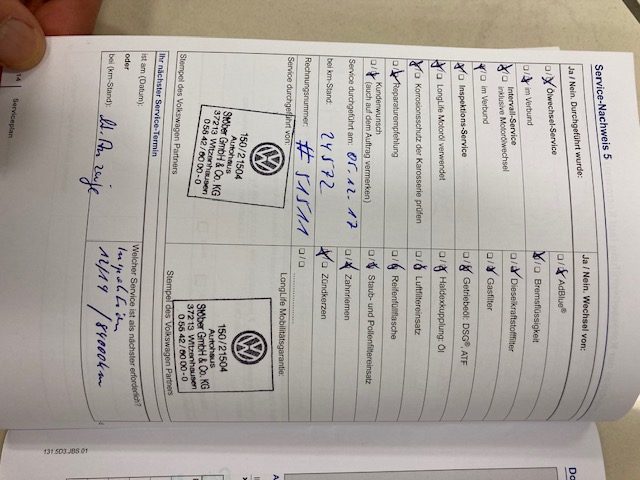 Service-Nachweis 5
Ja / Nein. Durchgeführt wurde:
Ölwechsel-Service
im Verbund
Intervall-Service
inklusive Motorölwechsel
im Verbund
Inspektions-Service
LongLife Motoröl verwendet
Korrosionsschutz der Karosserie prüfen
Reparaturempfehlung
Kundenwunsch
(auch auf dem Auftrag vermerken)
Service durchgeführt am: 05.12.17
bei km-Stand: 24572
Rechnungsnummer: # 51511
Service durchgeführt von:
150/21504
Autohaus
Stöber GmbH & Co. KG
37213 Witzenhausen
0 55 42 / 60 00 - 0
Stempel des Volkswagen Partners
Ja / Nein. Wechsel von:
AdBlue®
Bremsflüssigkeit
Dieselkraftstofffilter
Gasfilter
Getriebeöl: DSG® ATF
Haldexkupplung: Öl
Luftfiltereinsatz
Reifenfüllflasche
Staub- und Pollenfiltereinsatz
Zahnriemen
Zündkerzen
LongLife Mobilitätsgarantie:
150/21504
Autohaus
Stöber GmbH & Co. KG
37213 Witzenhausen
0 55 42 / 60 00 - 0
Stempel des Volkswagen Partners
Ihr nächster Service-Termin
ist am (Datum):
oder
bei (km-Stand): lt. Anzeige
Welcher Service ist als nächster erforderlich?
Inspektion
12/19 /
14 Serviceplan
131.5D3.JBS.01